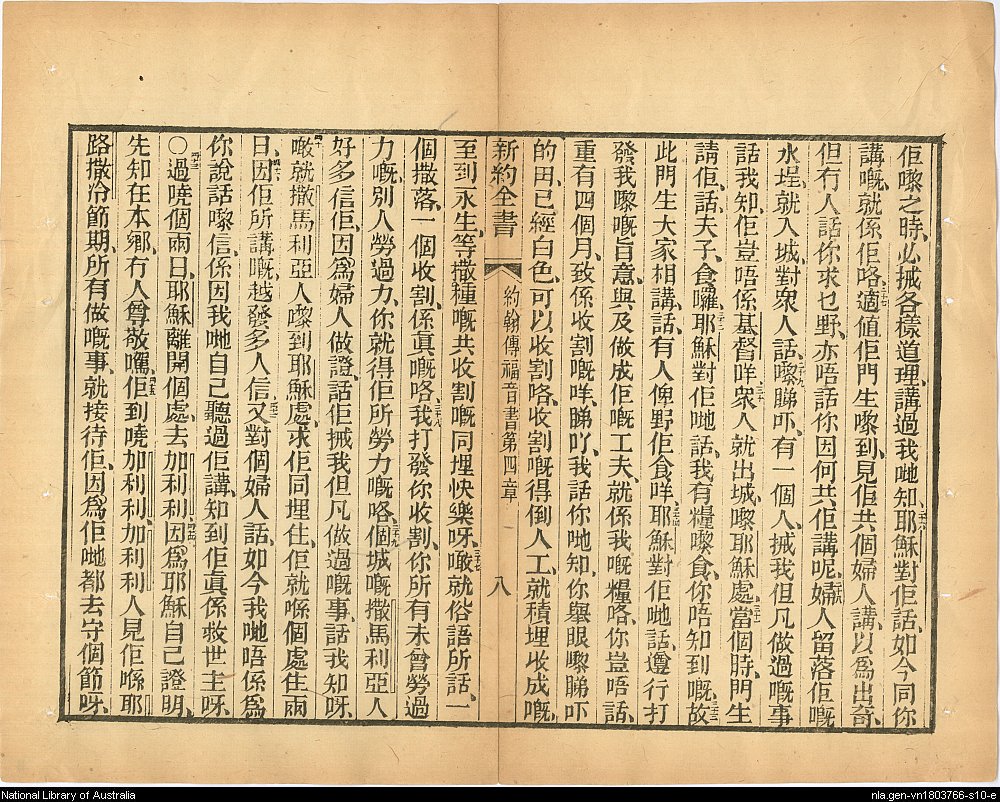 佢嚟之時、必搣各樣道理、講過我哋知、耶穌對佢話、如今同你
講嘅、就係佢咯、適値佢門生嚟到、見佢共個婦人講、以爲出奇、
但冇人話、你求乜野、亦唔話你因何共佢講呢、婦人留落佢嘅
水埕、就入城、對衆人話、嚟睇吓、有一個人、搣我但凡做過嘅事
話我知、佢豈唔係基督咩、衆人就出城、嚟耶穌處、當個時、門生
請佢、話、夫子、食囉、耶穌對佢哋話、我有糧嚟食、你唔知到嘅、故
此門生大家相講、話、有人俾野佢食咩、耶穌對佢哋話、遵行打
發我嚟嘅旨意、與及做成佢嘅工夫、就係我嘅糧咯、你豈唔話、
重有四個月、致係收割嘅咩、睇吖、我話你哋知、你舉眼嚟睇吓
的田、已經白色、可以收割咯、收割嘅得倒人工、就積埋收成嘅、
新約全書 約翰傳福音書第四章 八
至到永生、等撒種嘅共收割嘅同埋快樂呀、噉就俗語所話、一
個撒落、一個收割、係眞嘅咯、我打發你收割、你所有未曾勞過
力嘅、別人勞過力、你就得佢所勞力嘅咯、個城嘅撒馬利亞人
好多信佢、因爲婦人做證、話佢搣我但凡做過嘅事、話我知呀、
噉就撒馬利亞人嚟到耶穌處、求佢同埋住、佢就喺個處住兩
日、因佢所講嘅、越發多人信、又對個婦人話、如今我哋唔係爲
你說話嚟信、係因我哋自己聽過佢講、知到佢眞係救世主呀、
〇過曉個兩日、耶穌離開個處、去加利利、因爲耶穌自己證明、
先知在本鄉、冇人尊敬嘅、佢到曉加利利、加利利人見佢喺耶
路撒冷節期、所有做嘅事、就接待佢、因爲佢哋都去守個節呀、
National Library of Australia
nla.gen-vn1803766-s10-e